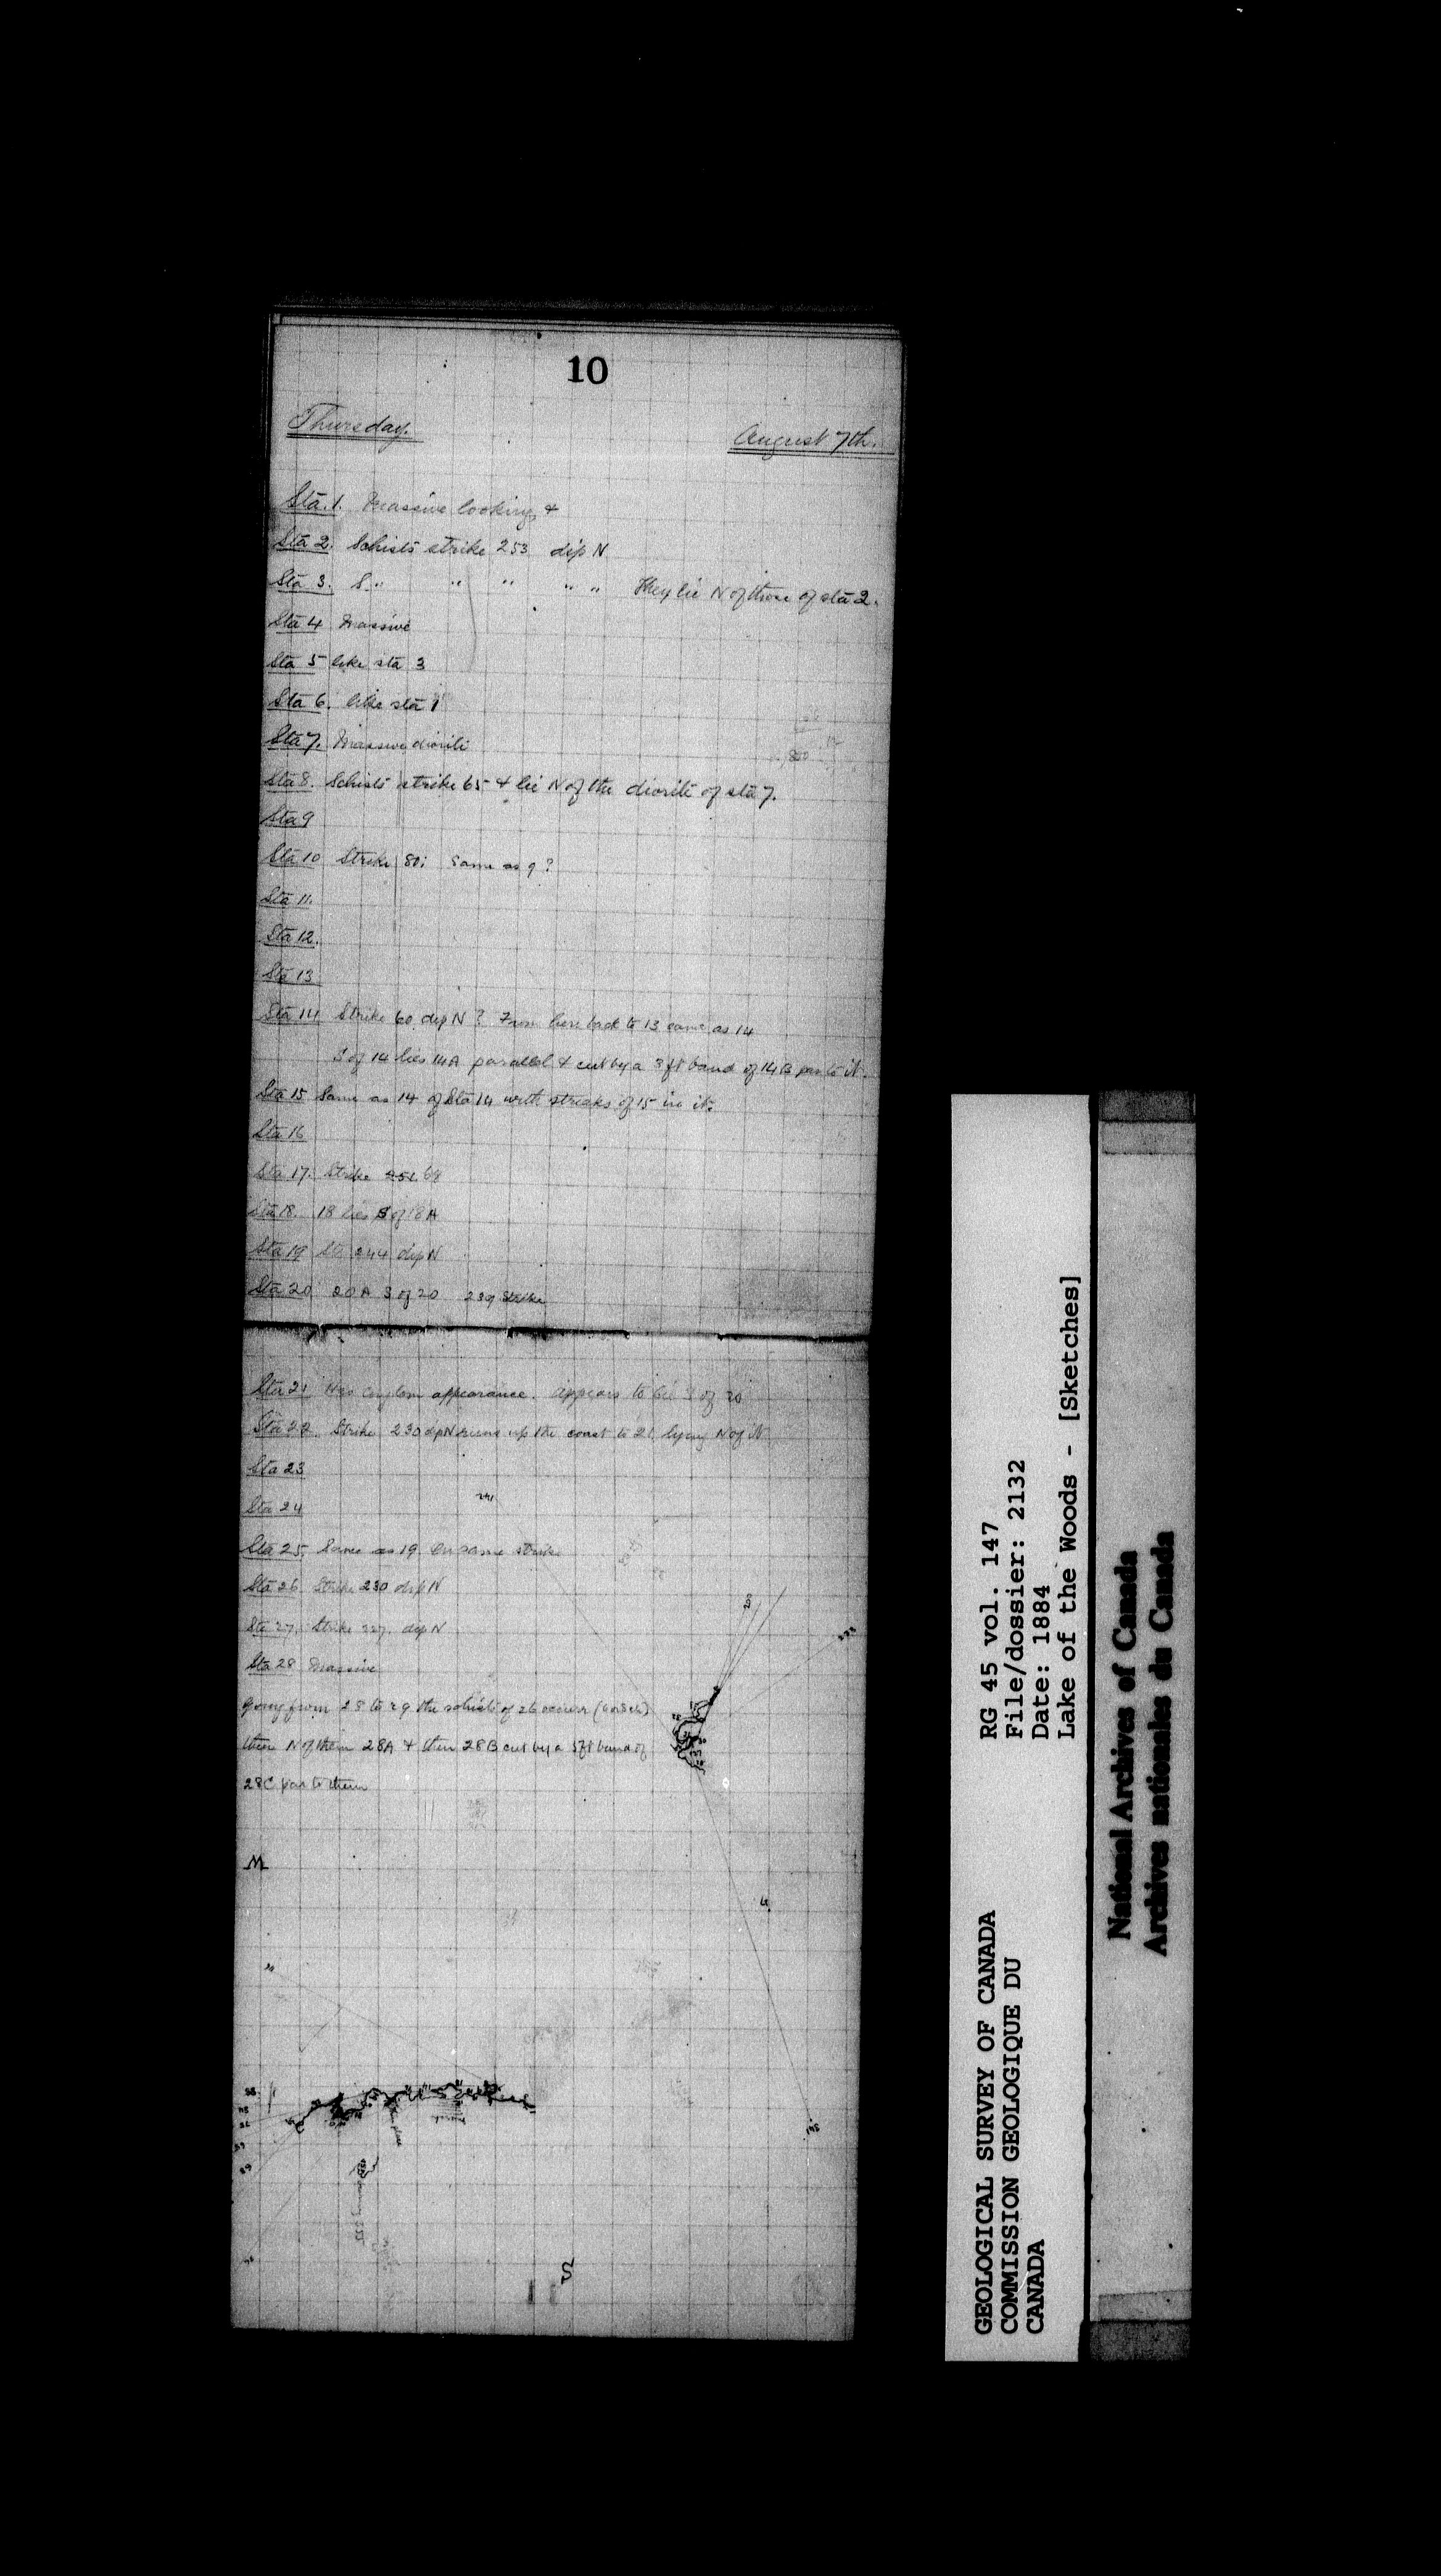 10
Thursday. August 7th.
Sta. 1. Massive looking &
Sta 2. Schists strike 253 dip N
Sta 3. S " " " " " They lie N of those of sta 2.
Sta 4 Massive
Sta 5 like sta 3
Sta 6. like sta 1
Sta 7. Massive diorite
Sta 8. Schists strike 65 & lie N of the diorite of sta 7.
Sta 9
Sta 10 Strike 80; Same as 9?
Sta 11.
Sta 12.
Sta 13
Sta 14 Strike 60 dip N? From here back to 13 same as 14
S of 14 lies 14A parallel & cut by a 3 ft band of 14B par to it.
Sta 15 Same as 14 of Sta 14 with streaks of 15 in it.
Sta 16
Sta 17. Strike
Sta 18. 18 lies S of 18A
Sta 19 St 244 dip N
Sta 20 20A S of 20 239 Strike
Sta 21 Has appearance. Appears to lie S of 20
Sta 22 Strike 230 dip N runs up the coast to 21 lying N of it
Sta 23
Sta 24
241
Sta 25. Same as 19. On same strike
Sta 26 Strike 230 dip N
Sta 27. Strike 227. dip N
Sta 28 Massive
going from 28 to 29 the schists of 26 occur
then N of them 28A & then 28B cut by a 5ft band of
28C par to them
S
GEOLOGICAL SURVEY OF CANADA
COMMISSION GEOLOGIQUE DU
CANADA
RG 45 vol. 147
File/dossier: 2132
Date: 1884
Lake of the Woods - [Sketches]
National Archives of Canada
Archives nationales du Canada